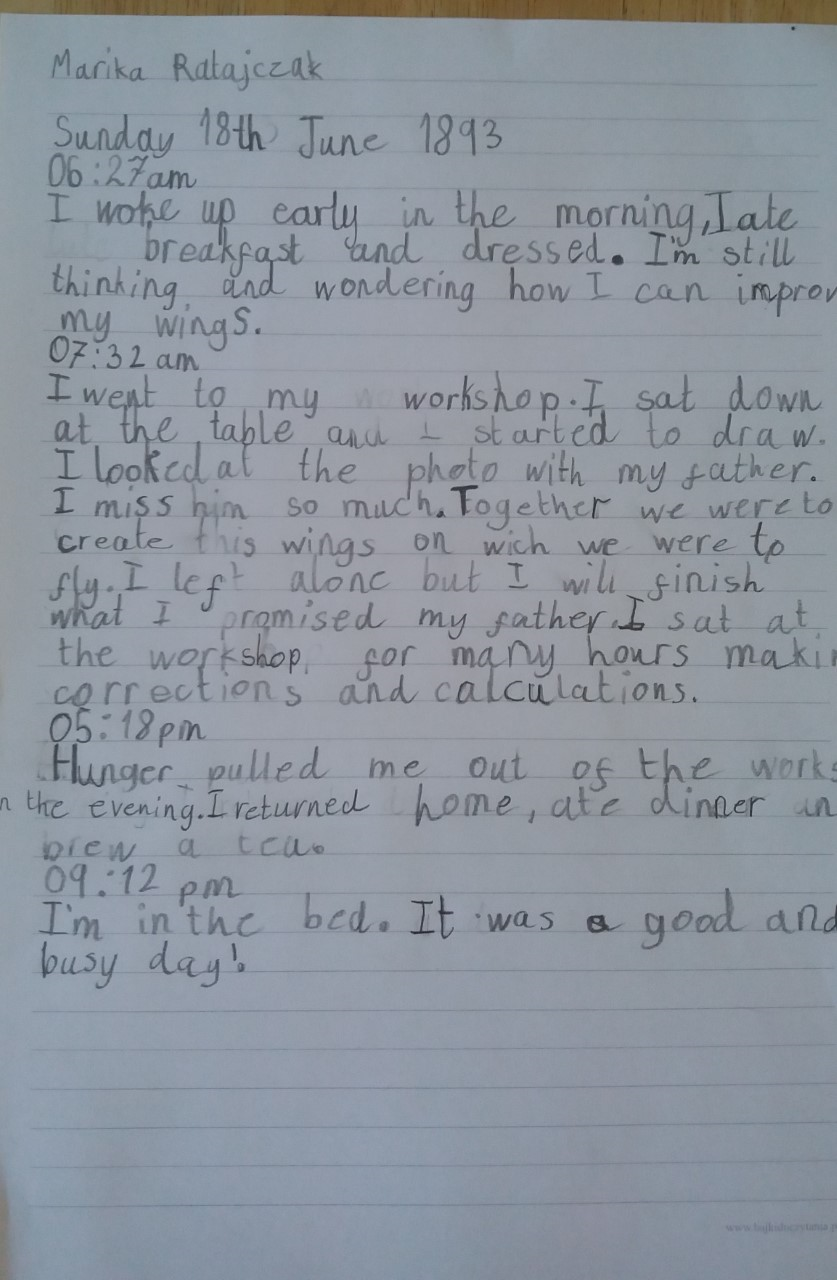 Marika Ratajczak
Sunday 18th June 1893
06:27am
I woke up early in the morning, I ate
breakfast and dressed. I'm still
thinking and wondering how I can improv
my wings.
07:32 am
I went to my workshop. I sat down
at the table and I started to draw.
I looked at the photo with my father.
I miss him so much. Together we were to
create this wings on wich we were to
fly. I left alone but I will finish
what I promised my father. I sat at
the workshop for many hours makin
corrections and calculations.
05:18pm
Hunger pulled me out of the works
n the evening. I returned home, ate dinner an
brew a tea.
09:12 pm
I'm in the bed. It was a good and
busy day!